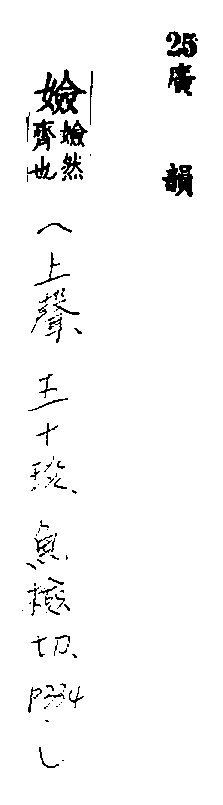 25 廣韻
嬐 嬐然齊也（上聲、五十琰、魚檢切、P334.）